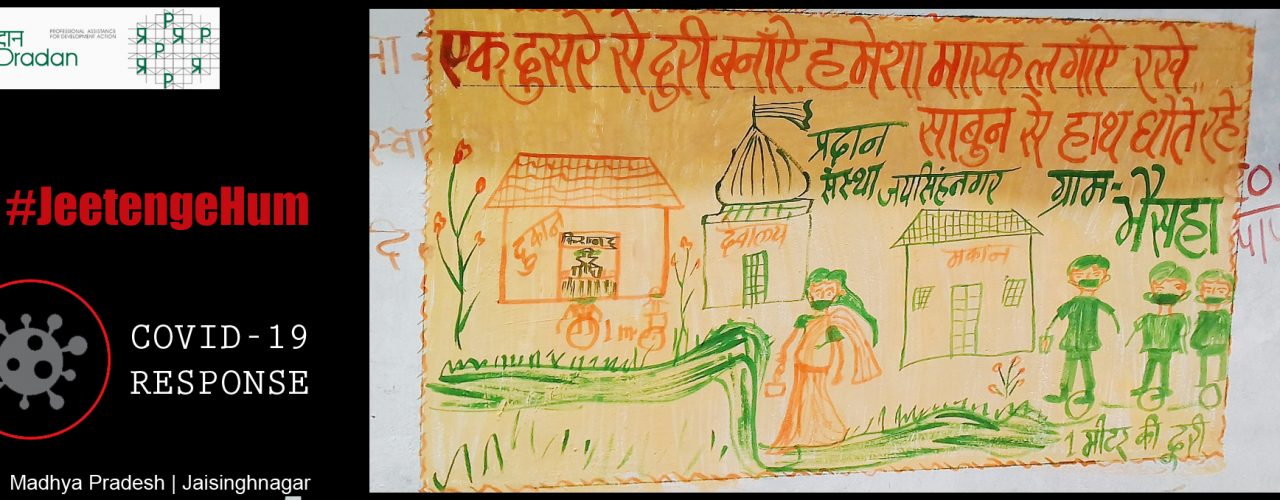 PROFESSIONAL ASSISTANCE
FOR DEVELOPMENT ACTION
Pradan
#JeetengeHum
COVID-19
RESPONSE
Madhya Pradesh | Jaisinghnagar
एक दुसरे से दुरी बनाँऐ. हमेशा मास्क लगाँऐ रखे..
साबुन से हाथ धोते रहे
प्रदान
संस्था जयसिंहनगर
ग्राम-
भैसहा
दुकान
देवालय
मकान
1 m
1 मीटर की दुरी